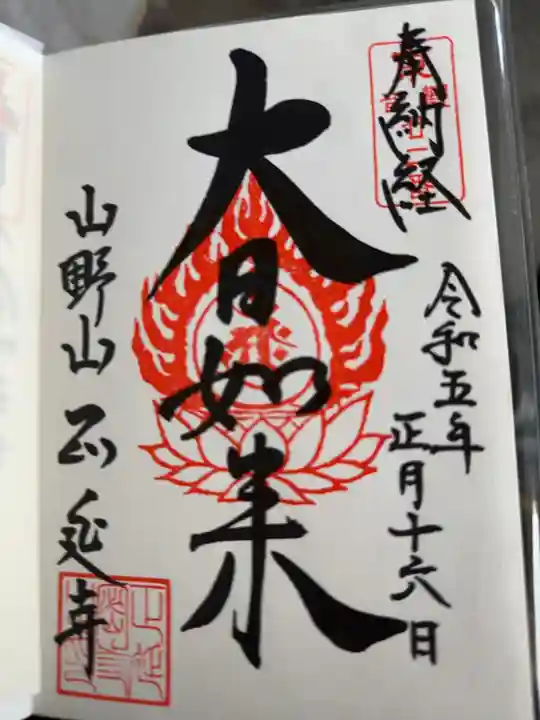 奉納経
令和五年
正月十六日
大日如来
山野山正延寺